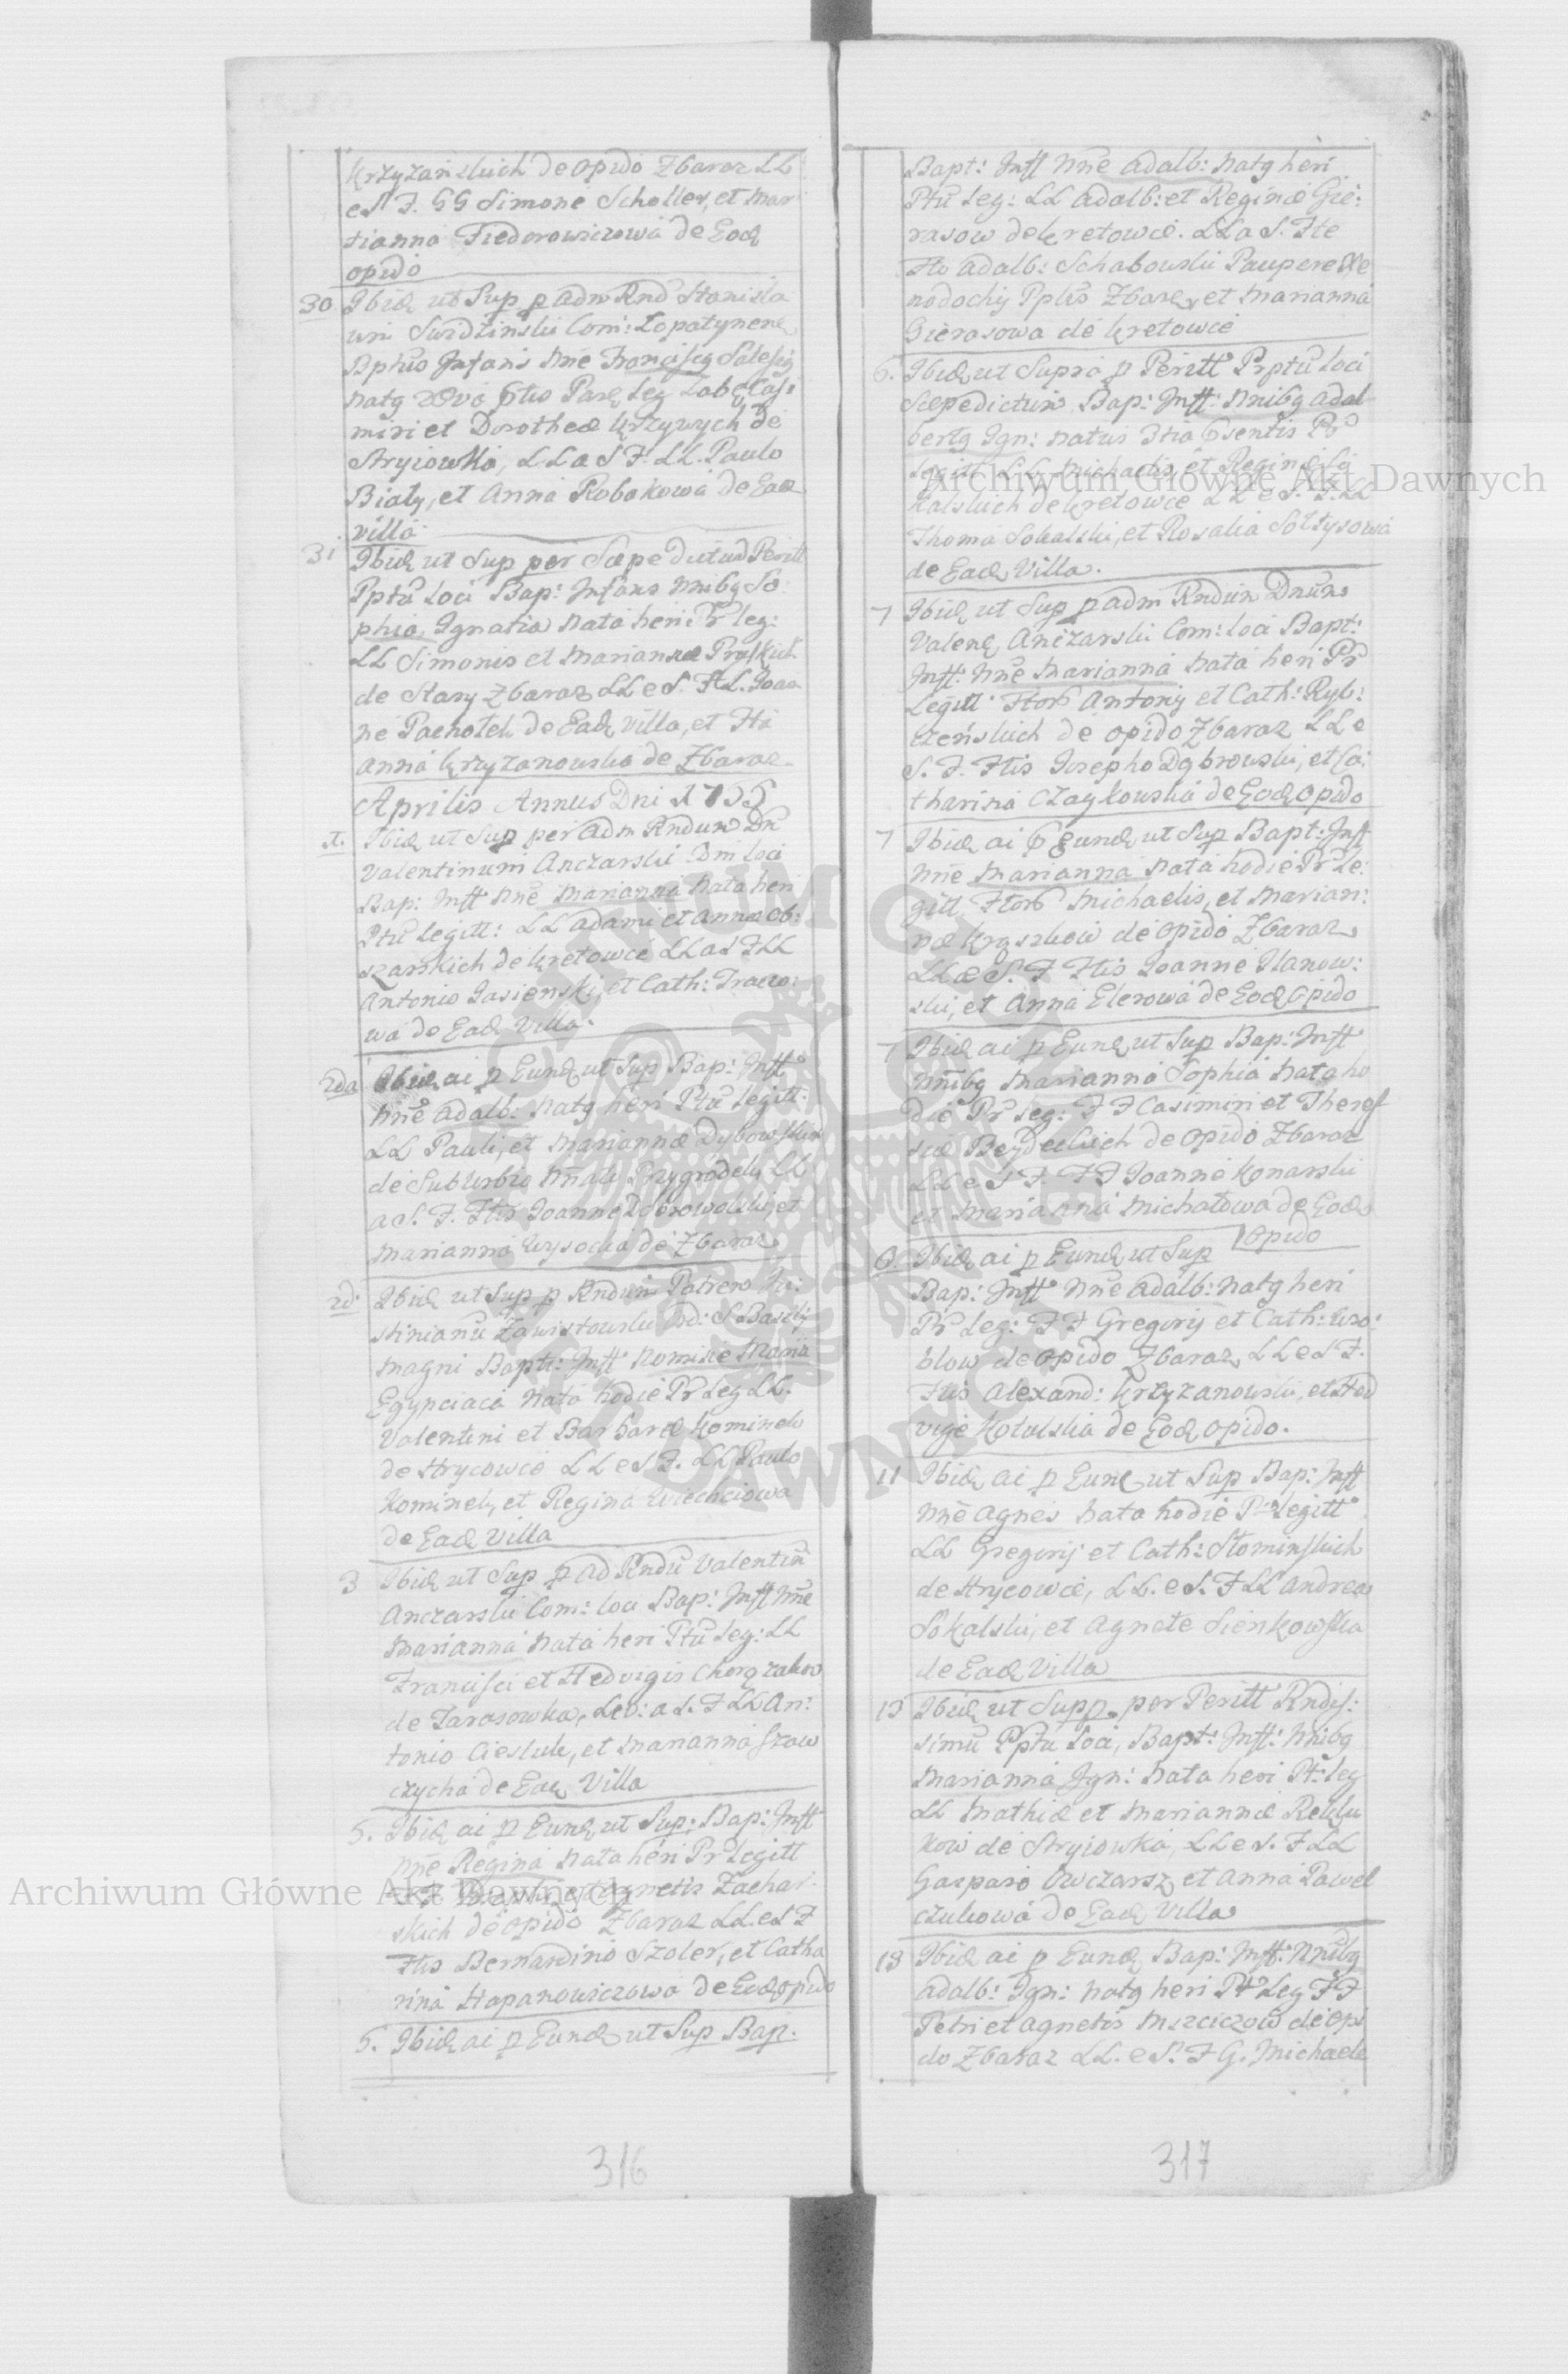 Krzyzanskich de opido Zbaraz LL
e S F. GG Simone Scholler, et Mar
tianna Fiedorowiczowa de Eod
opido
30 Ibid ut Sup p Adm Rnd Stanisla
um Swidzinski Com: Lopatynen
Bphus Infans Nne Franciscg Salesig
natg Par Leg Lab Casi
miri et Dorotheæ Krzywych de
Stryiowka, LL a S F. LL. Paulo
Biały, et Anna Robakowa de Ead
villa
31 Ibid ut Sup per Sæpe dictum Peritt
Pptu Loci Bap: Infans Nnibg So
phia, Ignatia Nata heri Pr leg:
LL Simonis et Mariannæ Pruskich
de Stary Zbaraz LL e S. F LL. Joan
ne Pachołek de Ead Villa, et Fta
Anna Krzyzanowska de Zbaraz
Aprilis Annus Dni 1795
1. Ibid ut Sup per Adm Rndum Dn
Valentinum Anczarski Com Loci
Bap: Inftt Nne Marianna Nata heri
Ptu Legitt: LL Adami et Anna Ob:
szarskich de Kretowce LL a S F LL
Antonio Jasienski, et Cath: Traczo:
wa de Ead Villa.
2da Ibid ai p Eund ut Sup Bap: Inftt
Nne Adalb: Natg heri Ptu Legitt:
LL Pauli, et Mariannæ Dybowskich
de Suburbio Maly Przygrodek, LL
a S. F. Ftis Joanne Dobrowolski, et
Marianna Wysocka de Zbaraz
2d. Ibid ut Sup p Rndum Patrem Ju:
stinianu Zawistowski Ord: S Basilij
Magni Bapt: Inftt Nomine Maria
Egypciaca Nata hodie Pr Leg LL.
Valentini et Barbaræ Kominek
de Hrycowce LL e S F. LL Paulo
Kominek, et Regina Wiechciowa
de Ead Villa
3 Ibid ut Sup p Ad Rndu Valentin
Anczarski Com: loci Bap: Inftt Nne
Marianna Nata heri Ptu Leg: LL
Francisci et Hedvigis Chorązakow
de Tarasowka, Lev: a S. F LL An:
tonio Ciesluk, et Marianna Szew
czycha de Ead Villa
5. Ibid ai p Eund ut Sup: Bap: Inftt
Nne Regina Nata heri Pr Legitt
et Agnetis Zachar
skich de opido Zbaraz LL. e S F
Ftis Bernardino Szoler, et Catha
rina Hapanowiczowa de Eod opido
5. Ibid ai p Eund ut Sup Bap.
316
Bapt: Inftt Nne Adalb: Natg heri
Ptu Leg: LL Adalb: et Reginæ Gie:
rasow de Kretowce. LL a S. Fte
Fto Adalb: Schabowski Paupere Xe
nodochij Pplis Zbaz, et Marianna
Gierasowa de Kretowce
6. Ibid ut Supra p Peritt Prptu Loci
Sæpedictum Bap: Inftt: Nnibg Adal
bertg Ign: natus 3tia Psentis Pr
Legitt LL Michaelis, et Reginæ So
kalskich de Kretowce LL e S. F. LL
Thoma Sokalski, et Rosalia Sołtysowa
de Ead Villa.
7 Ibid ut Sup p Adm Rndum Dnum
Valent Anczarski Com: Loci Bapt:
Inftt: Nne Marianna Nata heri Pr
Legitt Ftor Antonij et Cath: Ryb:
czeńskich de opido Zbaraz LL e
S. F. Ftis Josepho Dąbrowski, et Ca:
tharina Czaykowska de Eod opido
7 Ibid ai p Eund ut Sup Bapt: Inftt
Nne Marianna Nata hodie Pr Le:
gitt, Ftor Michaelis, et Marian:
næ Kraszkow de opido Zbaraz
LL e S. F Ftis Joanne Ilanow:
ski, et Anna Elerowa de Eod opido
7 Ibid ai p Eund ut Sup Bap: Inftt
Nnibg Marianna Sophia Nata ho
die Pr Leg: F F Casimiri et Theres
siæ Beydeckich de opido Zbaraz
LL e S F. F F Joanne Konarski
et Marianna Michałowa de Eod
opido
Ibid ai p Eund ut Sup
Bap: Inftt Nne Adalb: Natg heri
Pr Leg: F F Gregorij et Cath: Wro:
blow de opido Zbaraz LL e S F.
Ftis Alexand: Krzyzanowski, et Hed
vige Kotulska de Eod opido.
11 Ibid ai p Eund ut Sup Bap: Inftt
Nne Agnes Nata hodie Pr Legitt
LL Gregorij et Cath: Słominskich
de Hrycowce, LL. e S. F LL Andrea
Sokalski, et Agnete Sienkowska
de Ead Villa
13 Ibid ut Supp. per Peritt Rndis:
simu Pptu Loci, Bapt: Inftt: Nnibg
Marianna Ign: Nata heri Pt: leg
LL Mathiæ et Mariannæ Reklu
kow de Stryiowka, LL e S. F LL
Gasparo Owczarsz, et Anna Pawel
czukowa de Ead Villa
13 Ibid ai p Eund Bap: Inftt: Nnibg
Adalb: Ign: Natg heri Pt Leg F F
Petri et Agnetis Mszciczow de opi
do Zbaraz LL. e S. F G. Michaele
317
Archiwum Główne Akt Dawnych
Archiwum Główne Akt Dawnych